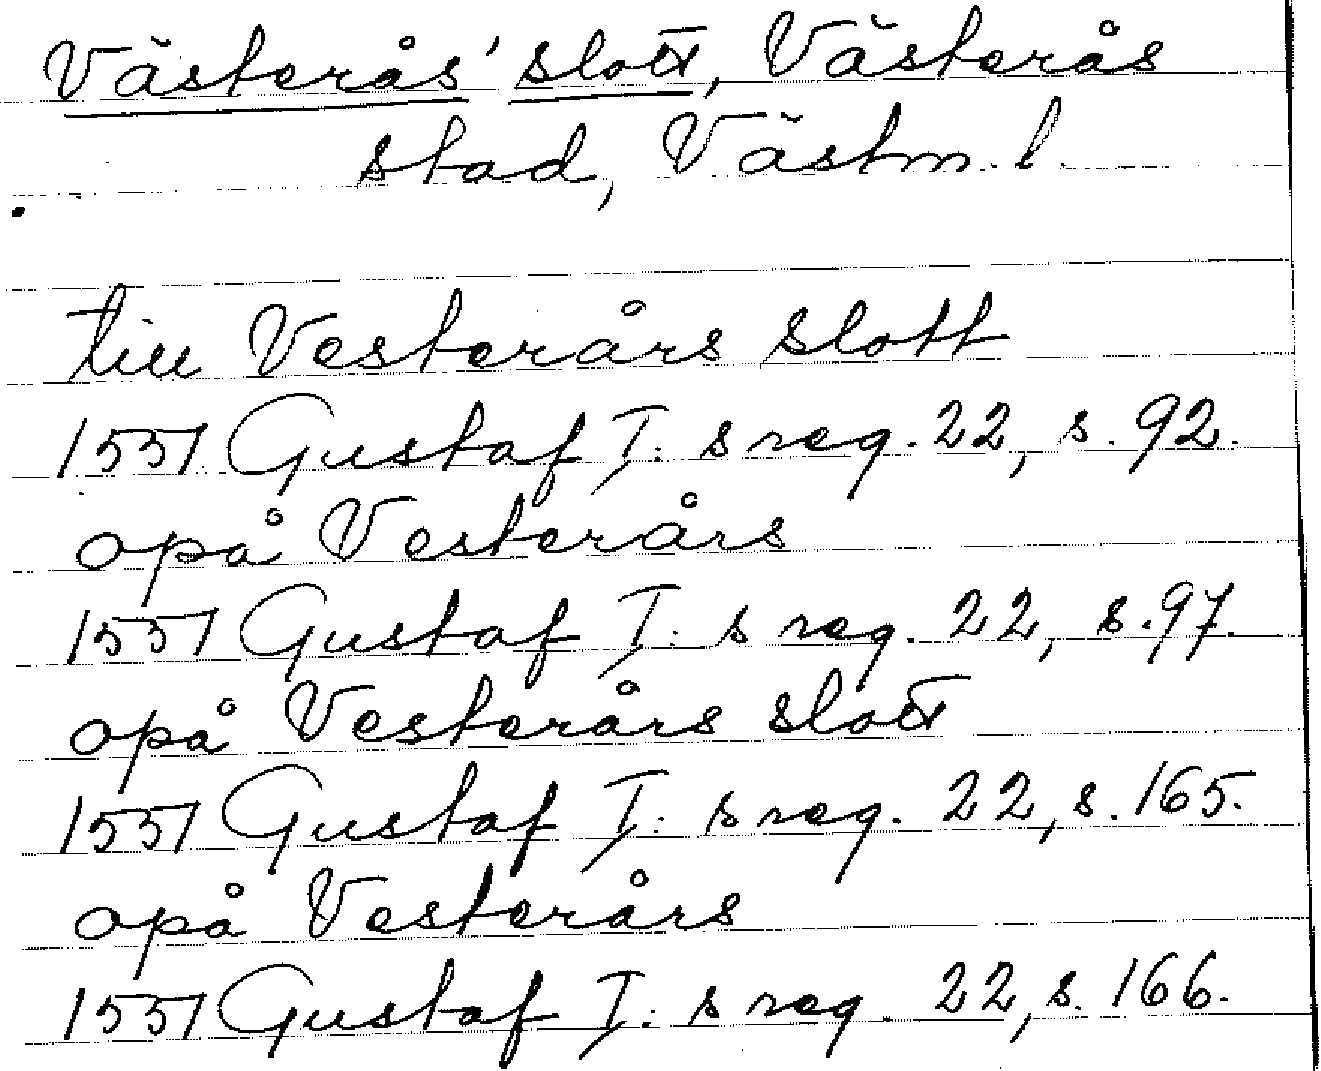 Västerås' slott, Västerås
stad, Västm. l.
till Vesterårs slott
1551 Gustaf I:s reg. 22, s. 92.
opå Vesterårs
1551 Gustaf I:s reg. 22, s. 97.
opå Vesterårs slott
1551 Gustaf I:s reg. 22, s. 165.
opå Vesterårs
1551 Gustaf I:s reg. 22, s. 166.